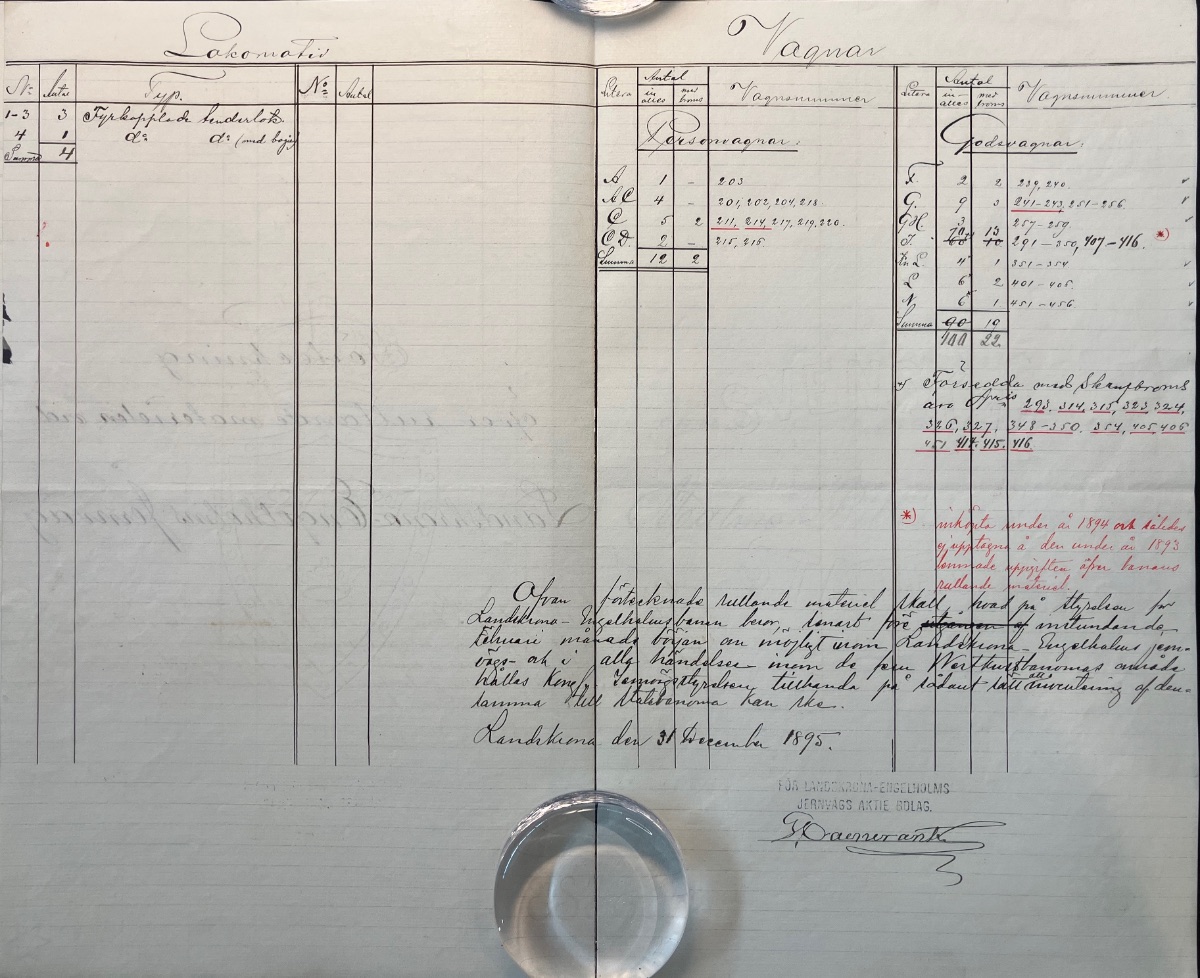 Lokomotiv
Vagnar
No Antal Typ. No Antal
1-3 3 Fyrkopplade tenderlok
4 1 do do (med bogie)
Summa 4
Litera Antal Vagnsnummer
in alles med broms
Personvagnar:
A 1 – 203
AC 4 – 201, 202, 204, 218.
C 5 2 211, 214, 217, 219, 220.
CD. 2 – 215, 216.
Summa 12 2
Litera Antal Vagnsnummer
in alles med broms
Godsvagnar:
F. 2 2 239, 240.
G. 9 3 241-243, 251-256.
GH 3 257-259
I. 70 13 291-350, 407-416. *)
L. 4 1 351-354
L 6 2 401-406.
N. 6 1 451-456
Summa 90 19
100 22.
Försedda med Skrufbroms
äro 293, 314, 315, 323, 324,
326, 327, 348-350, 354, 405, 406
451 415, 416
*) inköpta under år 1894 och således
ej upptagna å den under år 1893
lemnade uppgiften öfver banans
rullande materiel.
Ofvan förtecknade rullande materiel skall, hvad på Styrelsen för
Landskrona-Engelholmsbanan beror, senast före instundande
Februari månads början om möjligt inom Landskrona-Engelholms jern-
vägs- och i alla händelser inom de fem Westkustbanornas område
hållas Kongl. Jernvägsstyrelsen tillhanda på sådant sätt att inventering af den-
samma till statsbanorna kan ske.
Landskrona den 31 December 1895.
FÖR LANDSKRONA-ENGELHOLMS
JERNVÄGS AKTIE BOLAG.